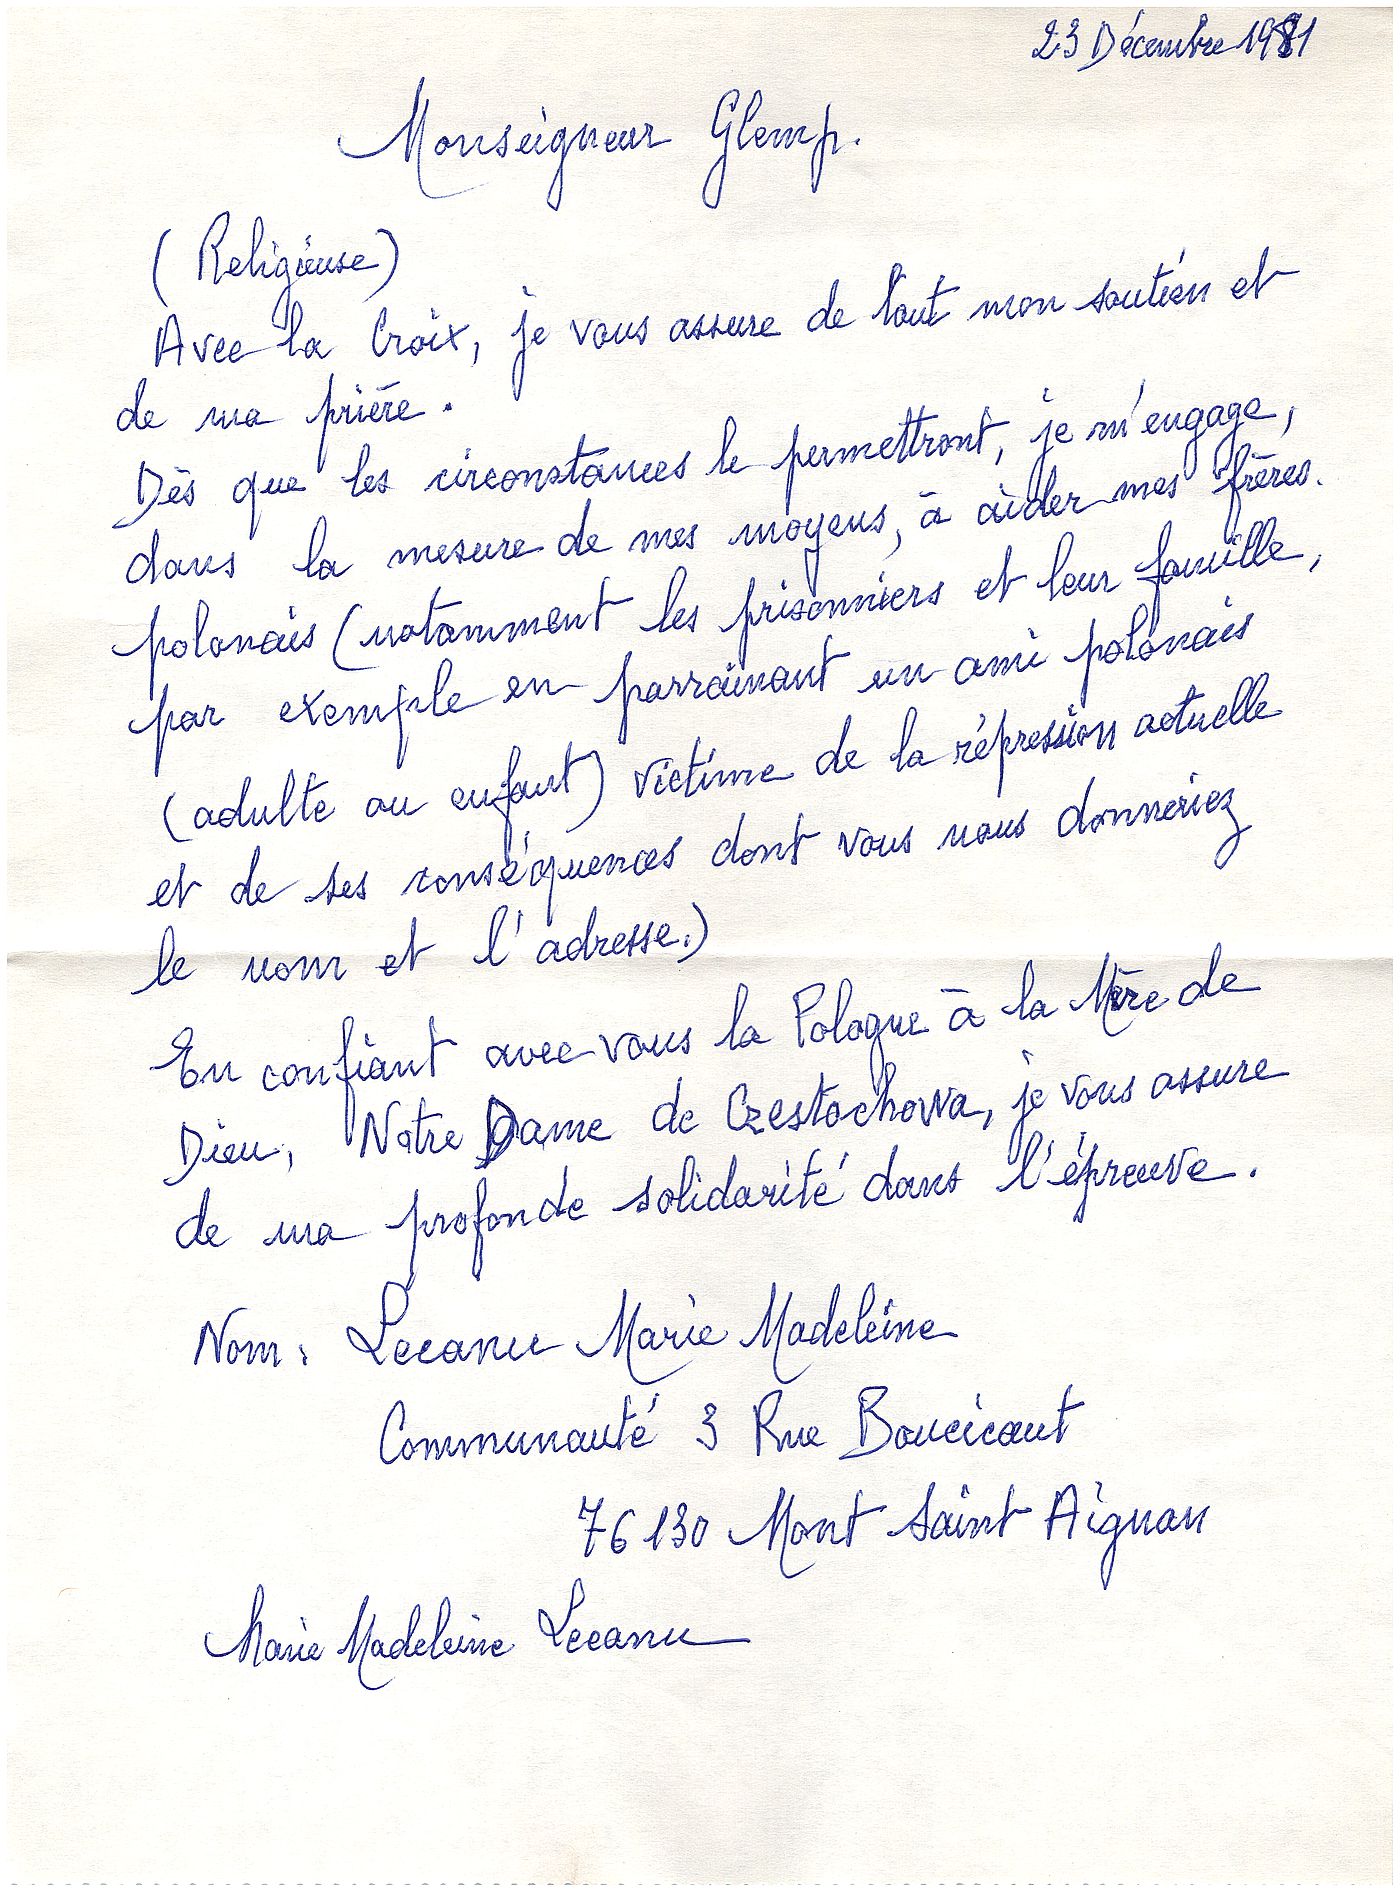 23 Décembre 1981
Monseigneur Glemp.
(Religieuse)
Avec la Croix, je vous assure de tout mon soutien et
de ma prière.
Dès que les circonstances le permettront, je m'engage,
dans la mesure de mes moyens, à aider mes frères.
polonais (notamment les prisonniers et leur famille,
par exemple en parrainant un ami polonais
(adulte ou enfant) victime de la répression actuelle
et de ses conséquences dont vous nous donneriez
le nom et l'adresse.)
En confiant avec vous la Pologne à la Mère de
Dieu, Notre Dame de Czestochowa, je vous assure
de ma profonde solidarité dans l'épreuve.
Nom: Lecanu Marie Madeleine
Communauté 3 Rue Boucicaut
76130 Mont Saint Aignan
Marie Madeleine Lecanu